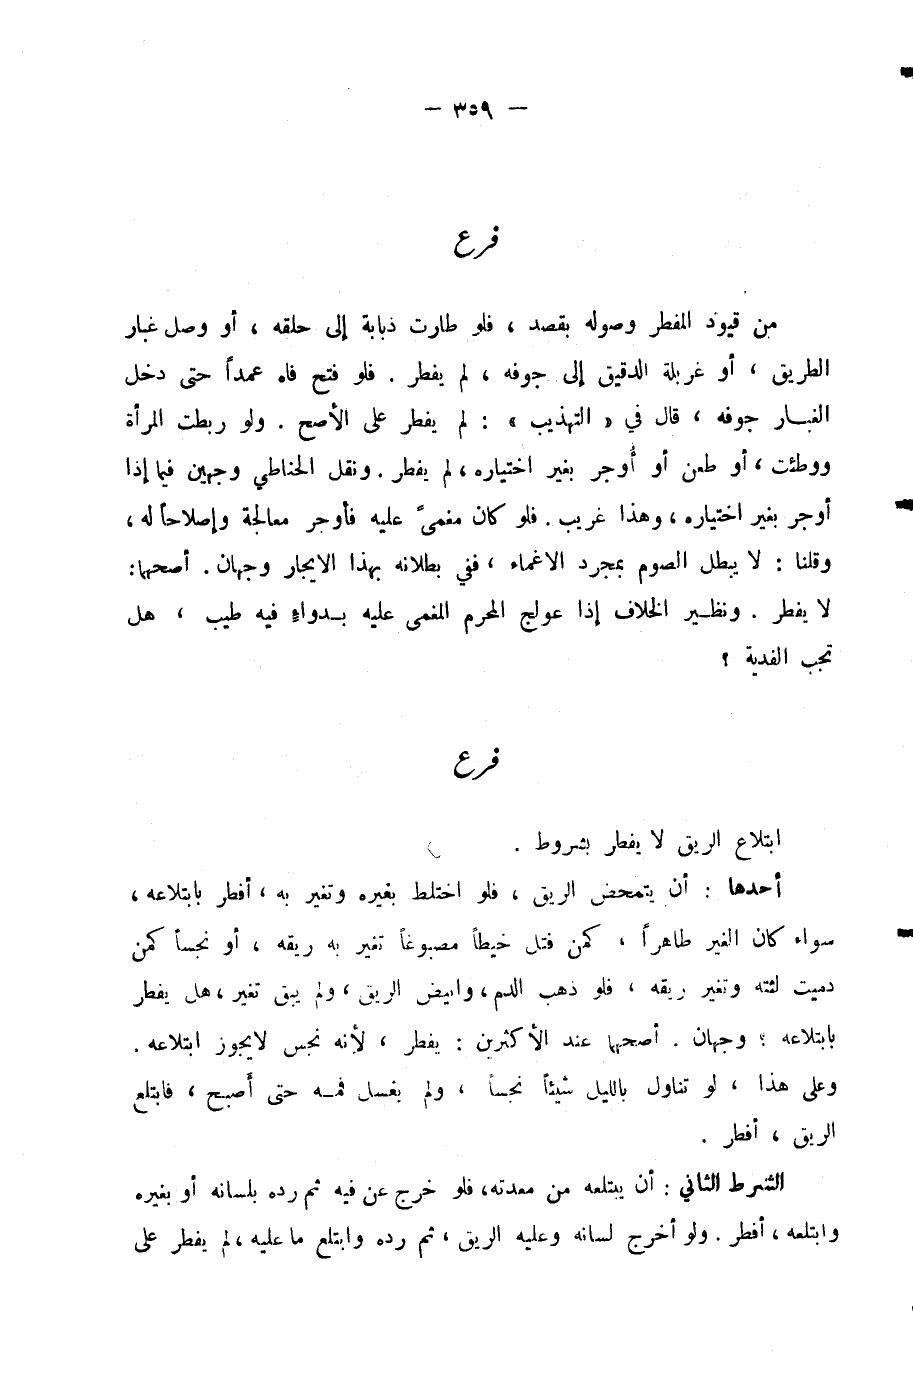 — ٣٥٩ —
فرع
من قيود المفطر وصوله بقصد ، فلو طارت ذبابة إلى حلقه ، أو وصل غبار
الطريق ، أو غربلة الدقيق إلى جوفه ، لم يفطر . فلو فتح فاه عمداً حتى دخل
الغبـار جوفه ، قال في « التهذيب » : لم يفطر على الأصح . ولو ربطت المرأة
ووطئت ، أو طعن أو أُوجر بغير اختياره ، لم يفطر . ونقل الحناطي وجهين فيما إذا
أوجر بغير اختياره ، وهذا غريب . فلو كان مغمىً عليه فأوجر معالجة وإصلاحاً له ،
وقلنا : لا يبطل الصوم بمجرد الاغماء ، ففي بطلانه بهذا الايجار وجهان . أصحها :
لا يفطر . ونظـير الخلاف إذا عولج المحرم المغمى عليه بـدواءٍ فيه طيب ، هل
تجب الفدية ؟
فرع
ابتلاع الريق لا يفطر بشروط .
أحدها : أن يتمحض الريق ، فلو اختلط بغيره وتغير به ، أفطر بابتلاعه ،
سواء كان الغير طاهراً ، كمن فتل خيطاً مصبوغاً تغير به ريقه ، أو نجساً كمن
دميت لثته وتغير ريقه ، فلو ذهب الدم ، وابيض الريق ، ولم يبق تغير ، هل يفطر
بابتلاعه ؟ وجهان . أصحها عند الأكثرين : يفطر ، لأنه نجس لايجوز ابتلاعه .
وعلى هذا ، لو تناول بالليل شيئاً نجساً ، ولم يغسل فمـه حتى أَصبح ، فابتلع
الريق ، أفطر .
الشرط الثاني : أن يبتلعه من معدته ، فلو خرج عن فيه ثم رده بلسانه أو بغيره
وابتلعه ، أفطر . ولو أخرج لسانه وعليه الريق ، ثم رده وابتلع ما عليه ، لم يفطر على